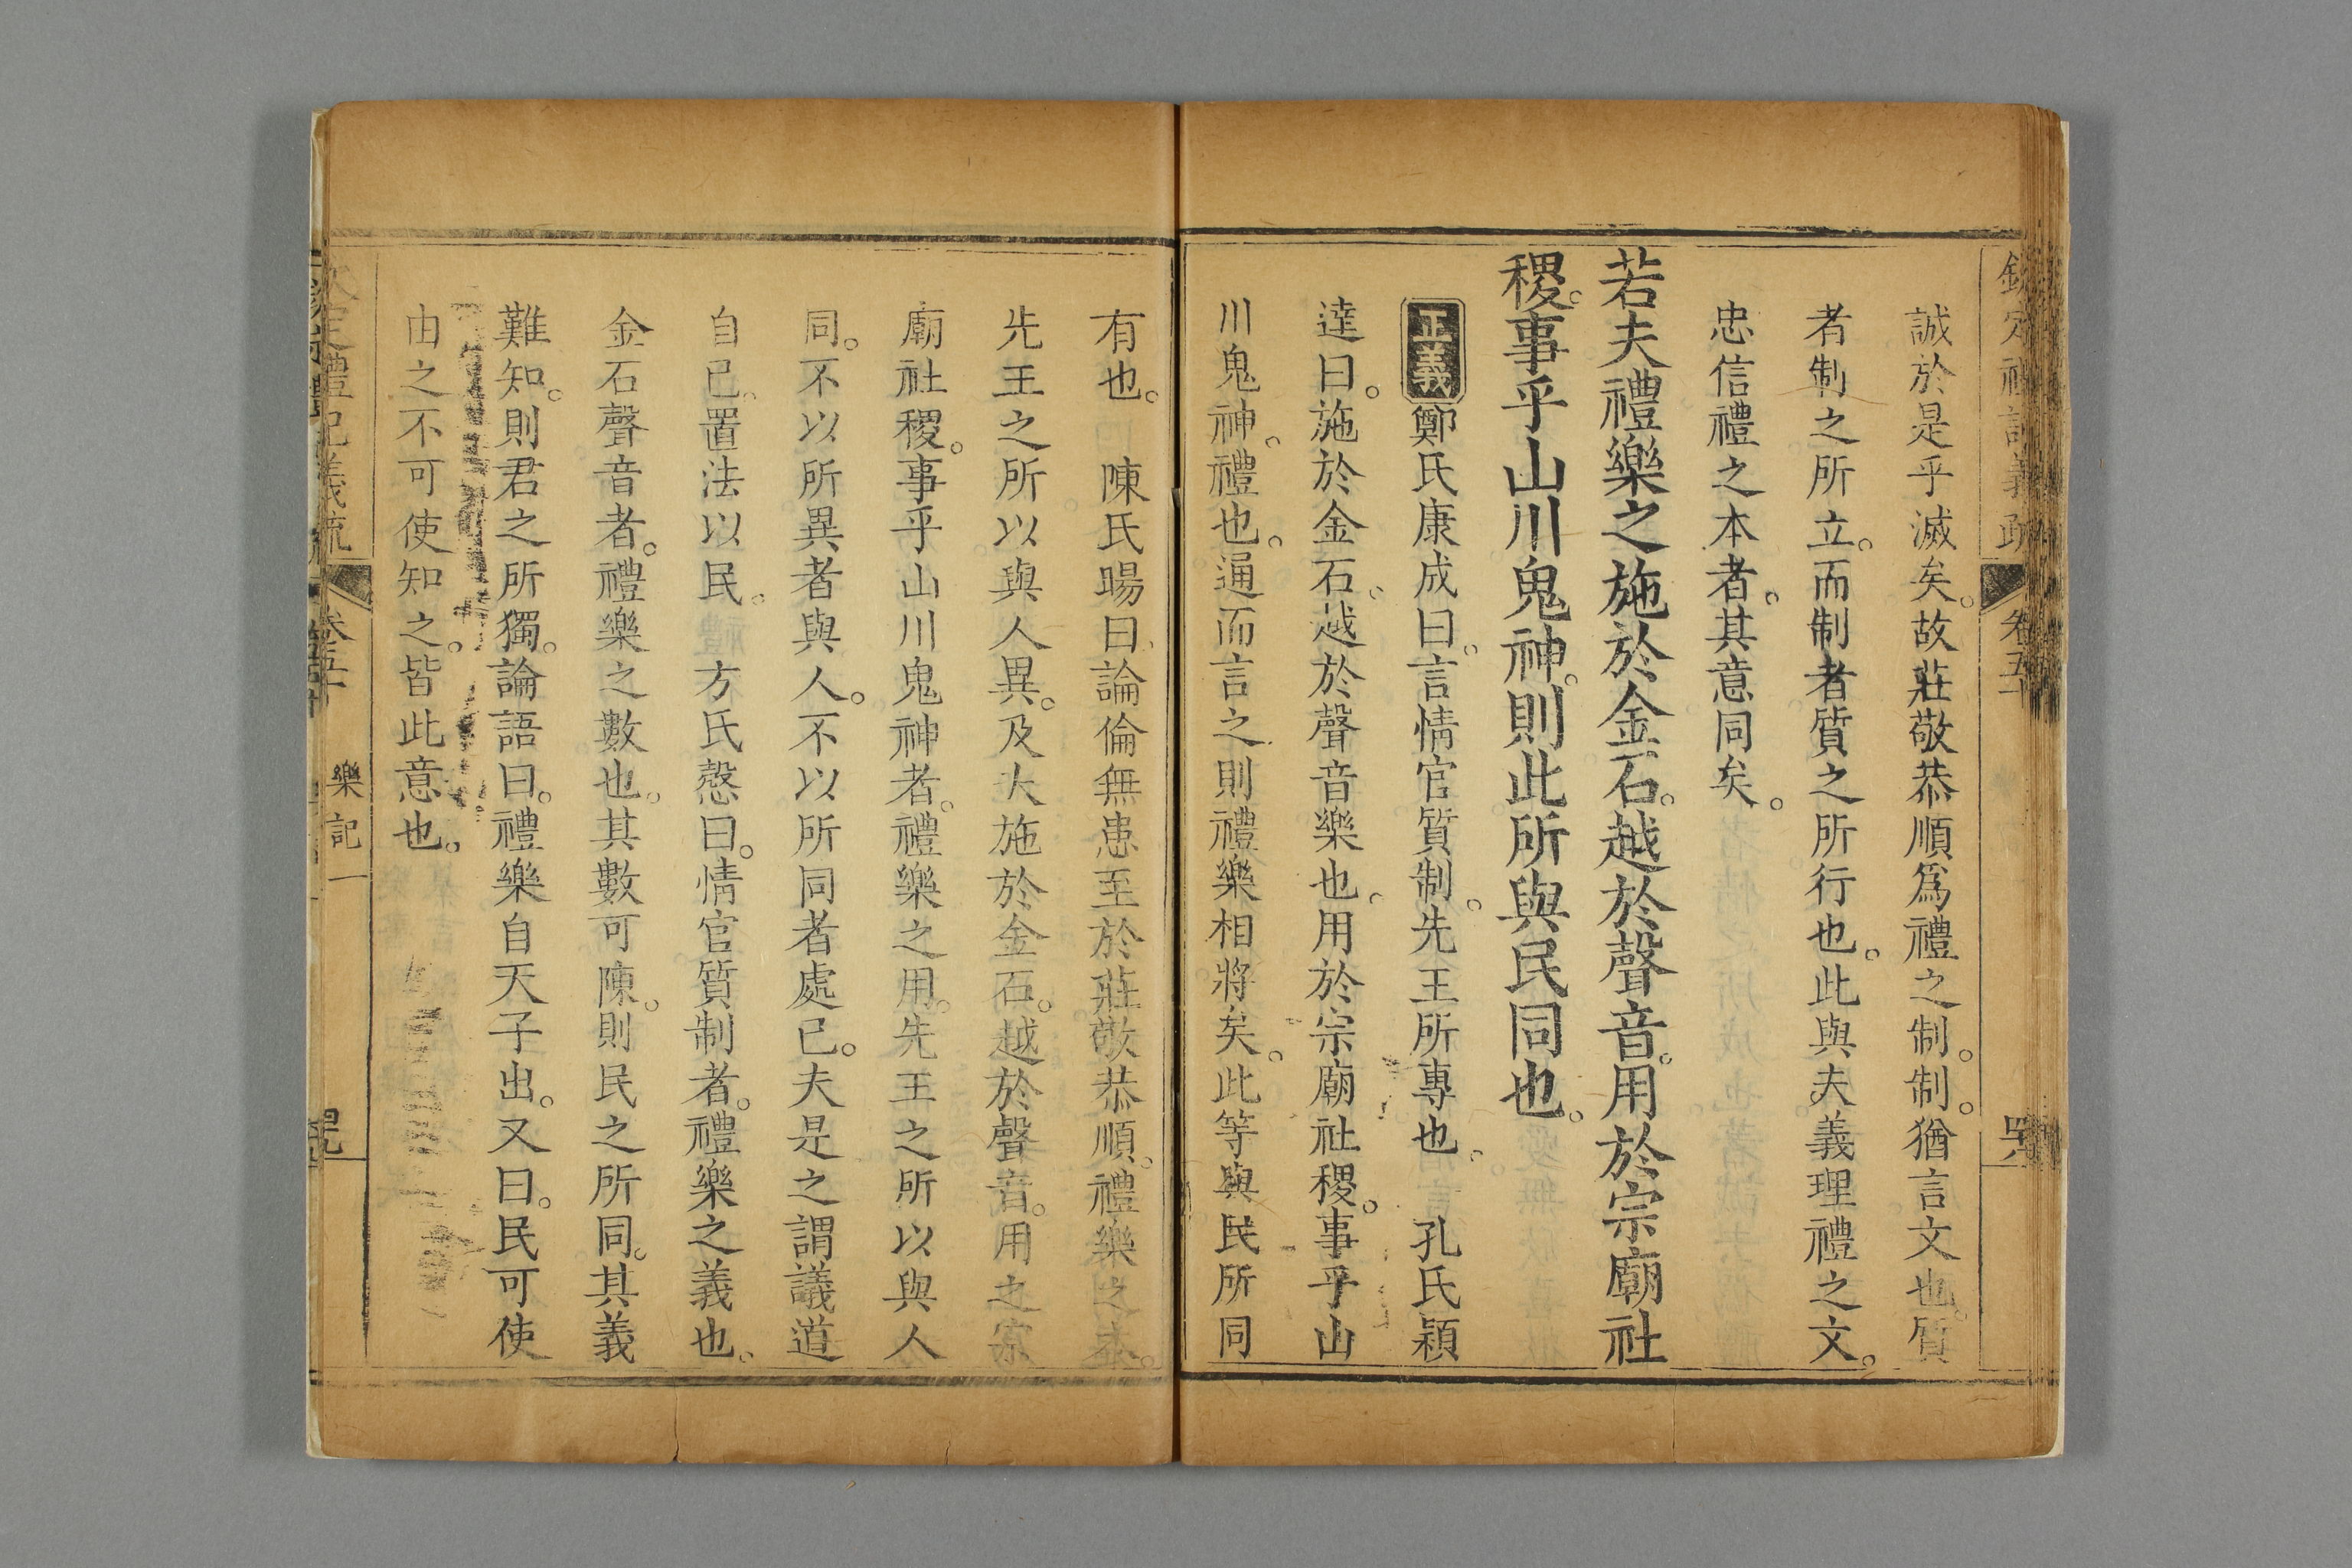 欽定禮記義疏 卷五十
誠於是乎滅矣。故莊敬恭順爲禮之制。制。猶言文也。質
者制之所立。而制者質之所行也。此與夫義理禮之文。
忠信禮之本者。其意同矣。
若夫禮樂之施於金石。越於聲音。用於宗廟社
稷。事乎山川鬼神。則此所與民同也。
正義鄭氏康成曰。言情官質制。先王所專也。 孔氏穎
達曰。施於金石。越於聲音。樂也。用於宗廟社稷。事乎山
川鬼神。禮也。通而言之。則禮樂相將矣。此等與民所同
有也。 陳氏暘曰。論倫無患至於莊敬恭順。禮樂之本。
先王之所以與人異。及大施於金石。越於聲音。用之宗
廟社稷。事乎山川鬼神者。禮樂之用。先王之所以與人
同。不以所異者與人。不以所同者處己。夫是之謂議道
自己。置法以民。 方氏慤曰。情官質制者。禮樂之義也。
金石聲音者。禮樂之數也。其數可陳。則民之所同。其義
難知。則君之所獨。論語曰。禮樂自天子出。又曰。民可使
由之不可使知之。皆此意也。
欽定禮記義疏 卷五十 樂記一